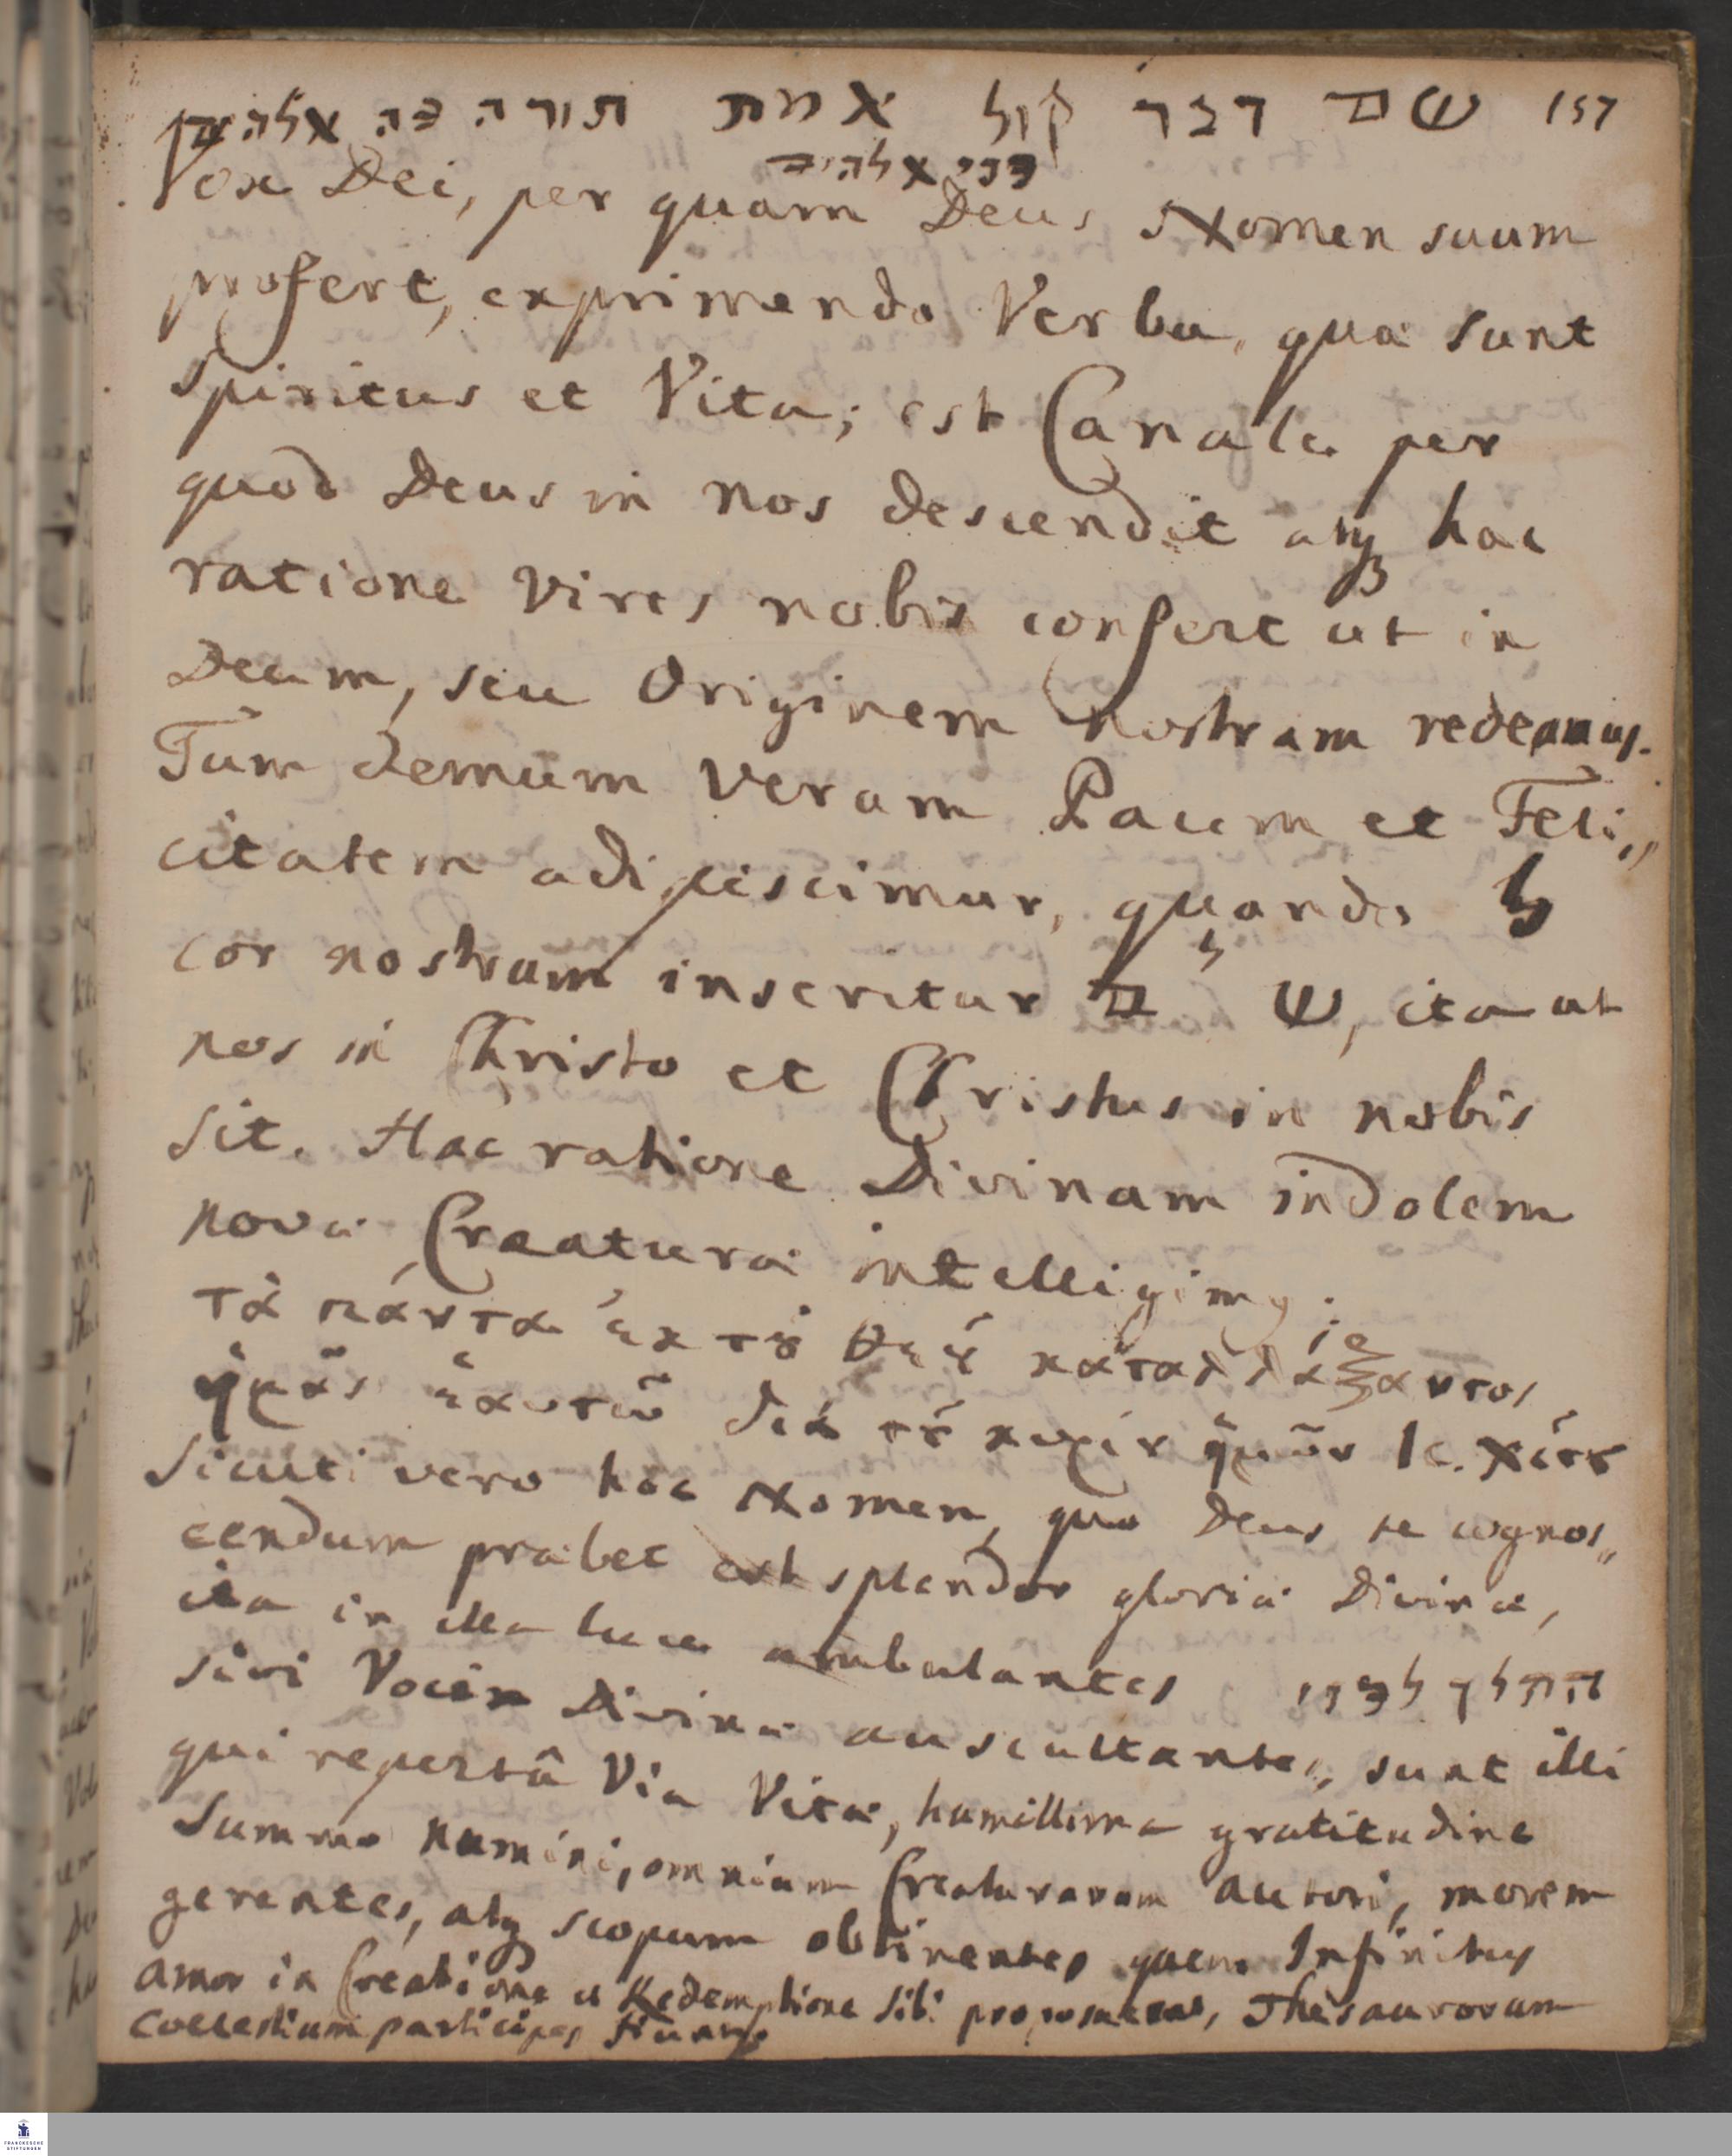 שם דבר קול אמת תורה פה אלהים 157
פני אלהים
Vox Dei, per quam Deus Nomen suum
profert, exprimendo Verba, quæ sunt
Spiritus et Vita; est Canale per
quod Deus in nos descendit atq hac
ratione vires nobis confert ut in
Deum, seu Originem nostram redeamus.
Tum demum veram Pacem et Feli„
citatem adipiscimur, quando ל
cor nostrum inseritur ם ש, ita ut
nos in Christo et Christus in nobis
sit. Hac ratione Divinam indolem
novæ Creaturæ intelligimy.
τὰ πάντα ἐκ τȣ͂ θεȣ͂ καταλλάξαντος
ἡμᾶς ἑαυτῶ διὰ τȣ͂ κυρίȣ ἡμῶν Ιε. χστȣ
Sicuti vero hoc Nomen, quo Deus se cognos„
cendum præbet est splendor gloriæ Divinæ,
ita in illa luce ambulantes התהלך לפני
sivi Voci Divinæ auscultantes, sunt illi
qui repertâ Via Vitæ, humillima gratitudine
Summo numini, omnium Creaturarum autori, morem
gerentes, atq scopum obtinentes quem Infinitus
amor in Creatione et Redemptione sibi proposuerat, Thesaurorum
Coelestium participes